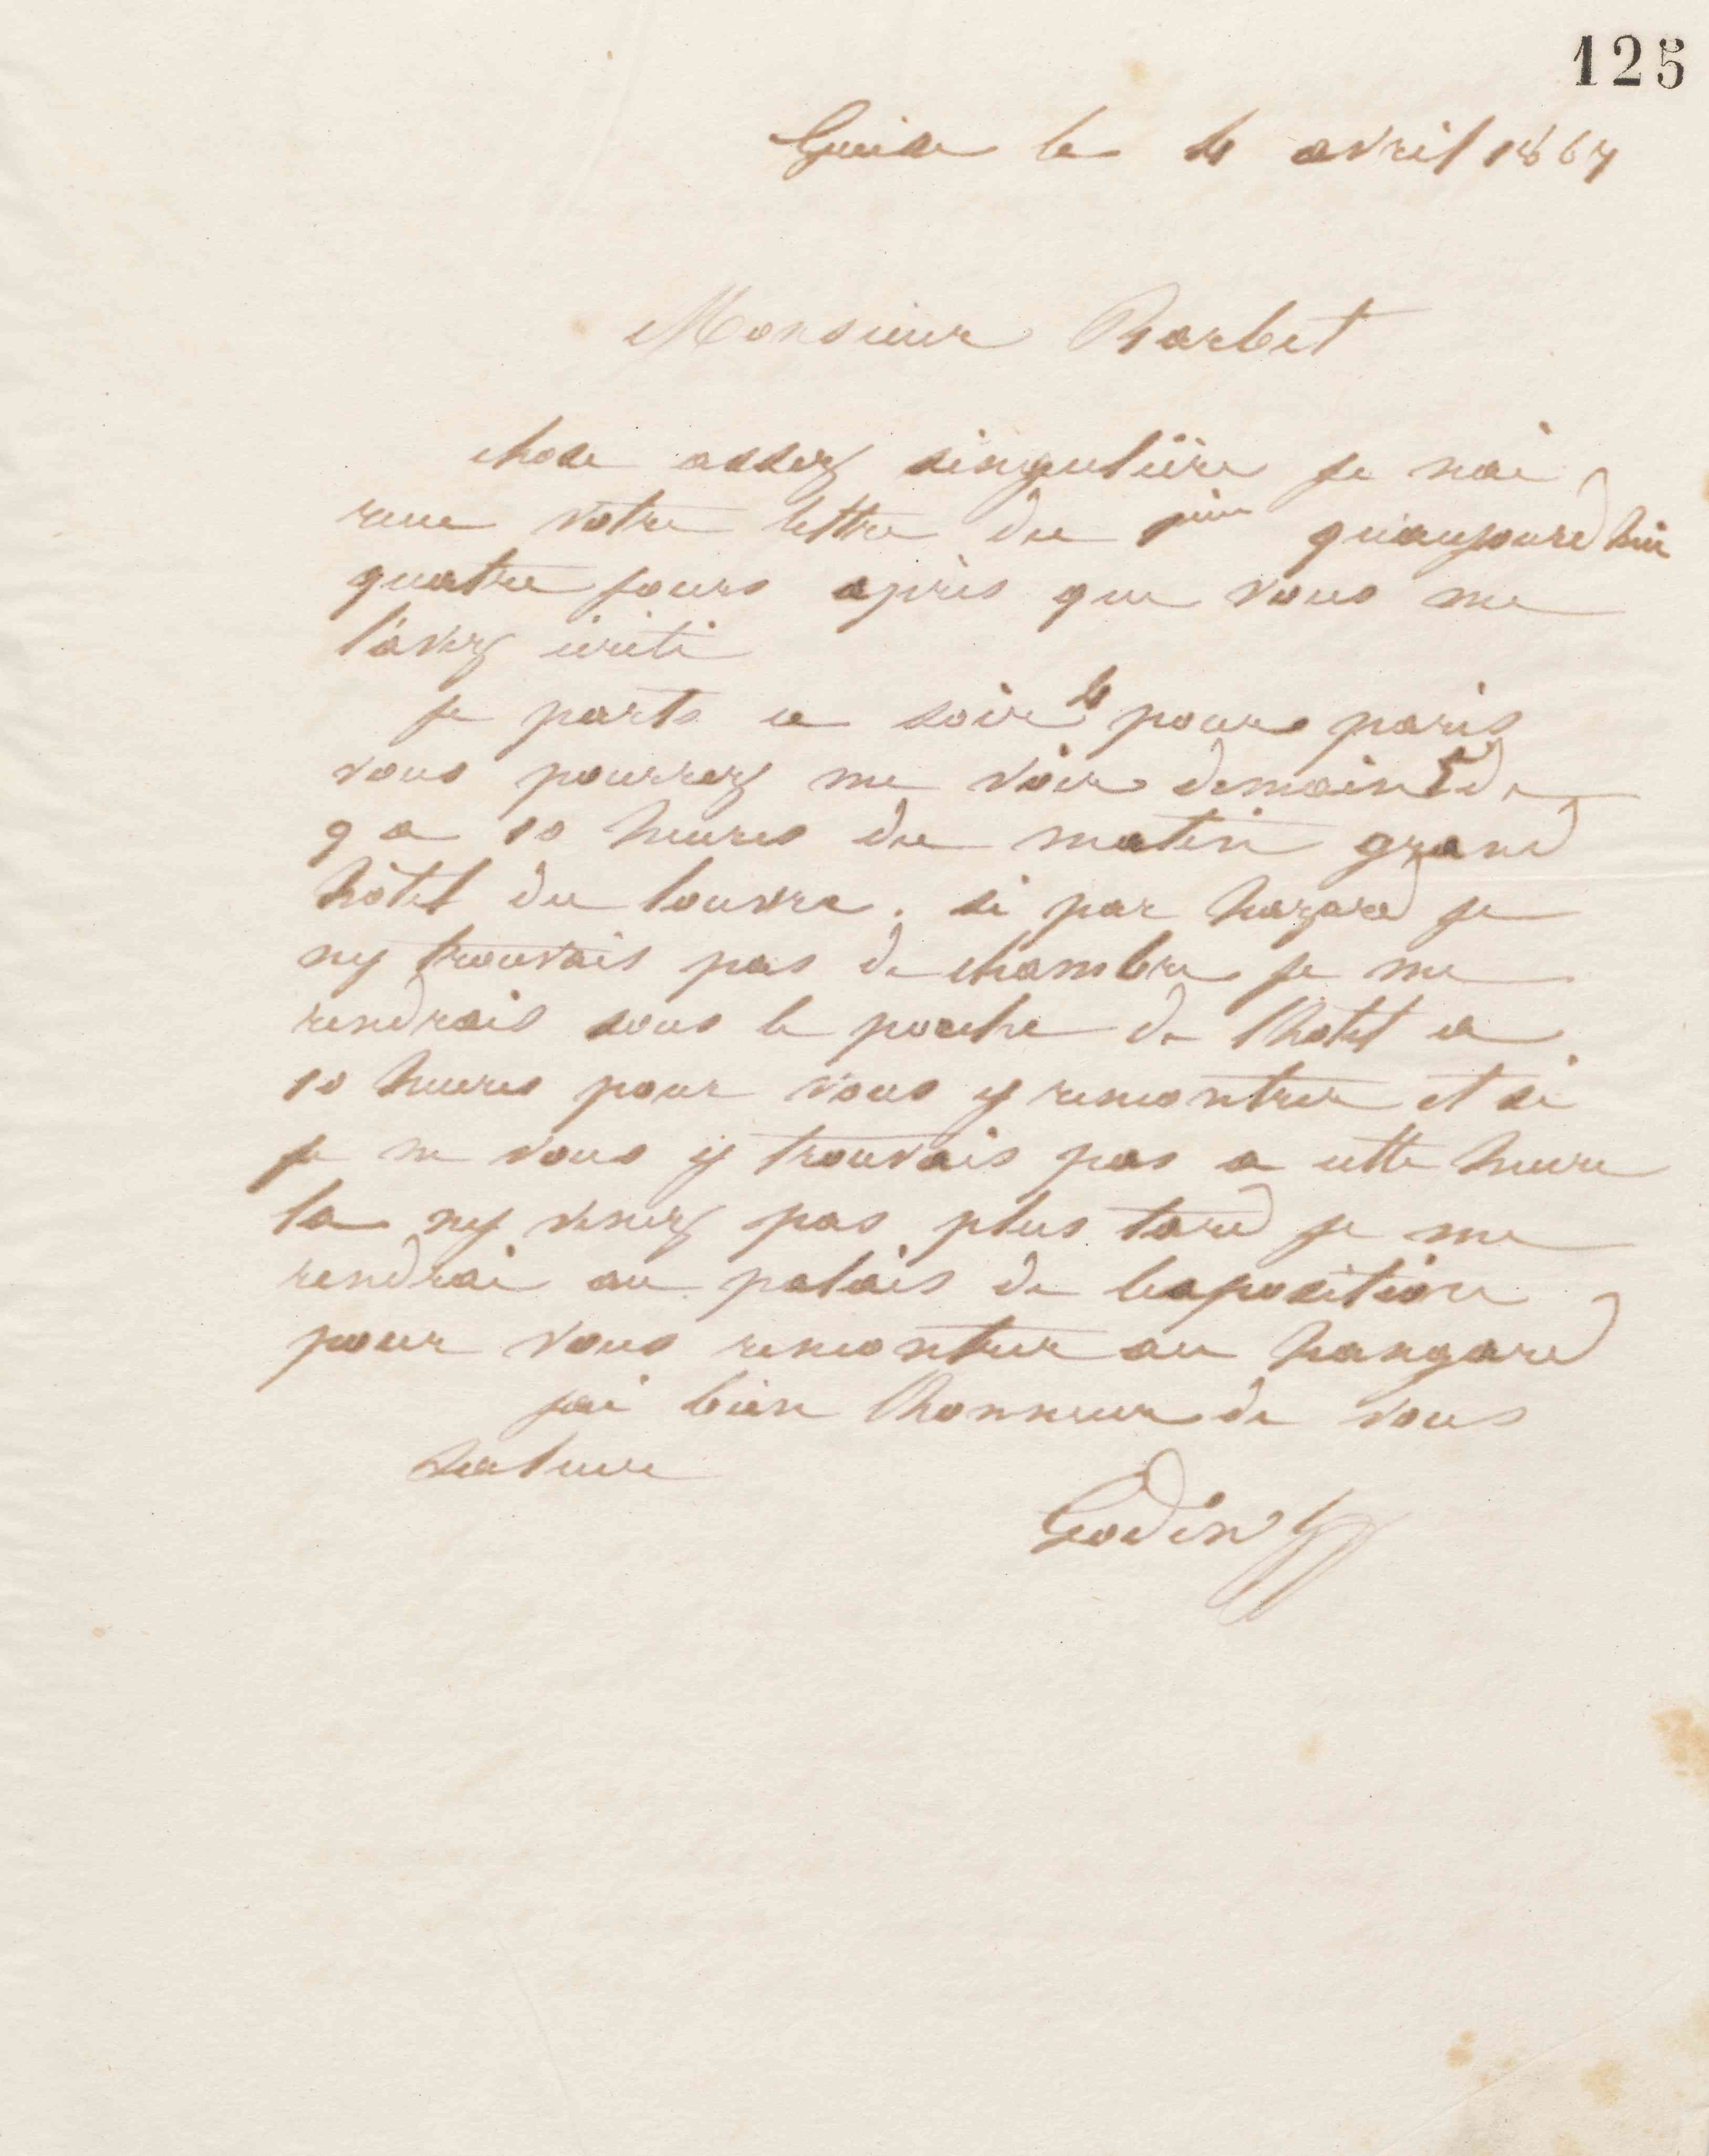 125
Guise le 4 avril 1867
Monsieur Barbet
chose assez singulière je nai
recue votre lettre du quaujourdhui
quatre jours après que vous me
l'avez ecrite
je parts ce soir 4 pour paris
vous pourrez me voir demain 5 de
9 a 10 heures du matin grand
hôtel du louvre. si par hazard je
ny trouvais pas de chambre je me
rendrais sous le porche de lhotel a
10 heures pour vous y rencontrer et si
je ne vous y trouvais pas a cette heure
la ny venez pas plus tard je me
rendrai au palais de lexposition
pour vous rencontrer au hangard
jai bien lhonneur de vous
saluer
Godin